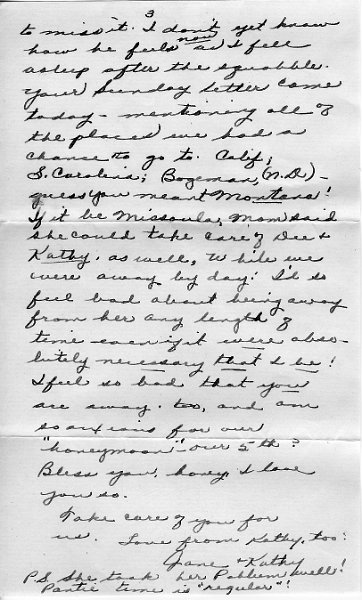 3
to miss it. I don't yet know
how he feels now as I fell
asleep after the squabble.
Your Sunday letter came
today - mentioning all of
the places we had a
chance to go to. Calif;
S. Carolina; Bozeman, (N.D.) -
guess you meant Montana!
If it be Missoula, Mom said
she could take care of Dee &
Kathy, as well, while we
were away by day! I'd so
feel bad about being away
from her any length of
time - even if it were abso-
lutely necessary that I be!
I feel so bad that you
are away, too, and am
so anxious for our
"honeymoon" - our 5th?
Bless you, honey, I love
you so.
Take care of you for
us. Love from Kathy, too:
Jane & Kathy
P.S. She took her Pablum well!
Pantie time is "regular"!